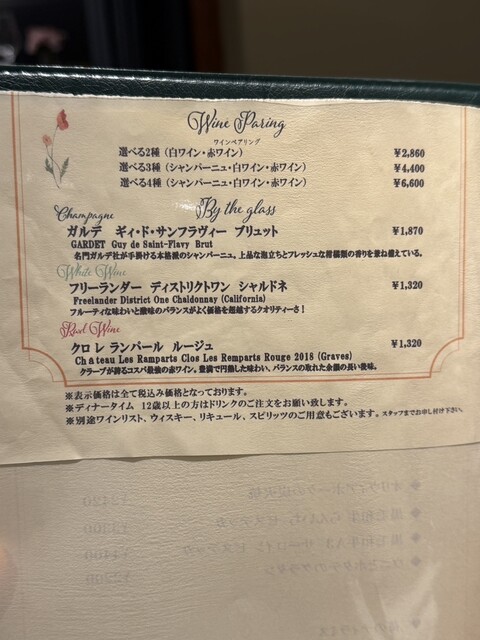 Wine Paring
ワインペアリング
選べる2種（白ワイン・赤ワイン） ¥2,860
選べる3種（シャンパーニュ・白ワイン・赤ワイン） ¥4,400
選べる4種（シャンパーニュ・白ワイン・赤ワイン） ¥6,600
Champagne By the glass
ガルデ ギィ・ド・サンフラヴィー ブリュット ¥1,870
GARDET Guy de Saint-Flavy Brut
名門ガルデ社が手掛ける本格派のシャンパーニュ。上品な泡立ちとフレッシュな柑橘類の香りを兼ね備えている。
White Wine
フリーランダー ディストリクトワン シャルドネ ¥1,320
Freelander District One Chaldonnay (California)
フルーティな味わいと酸味のバランスがよく価格を超越するクオリティーさ！
Read Wine
クロ レ ランパール ルージュ ¥1,320
Château Les Ramparts Clos Les Remparts Rouge 2018 (Graves)
クラーブが誇るコスパ最強の赤ワイン。豊満で円熟した味わい、バランスの取れた余韻の長い後味。
※表示価格は全て税込み価格となっております。
※ディナータイム 12歳以上の方はドリンクのご注文をお願い致します。
※別途ワインリスト、ウィスキー、リキュール、スピリッツのご用意もございます。スタッフまでお申し付け下さい。